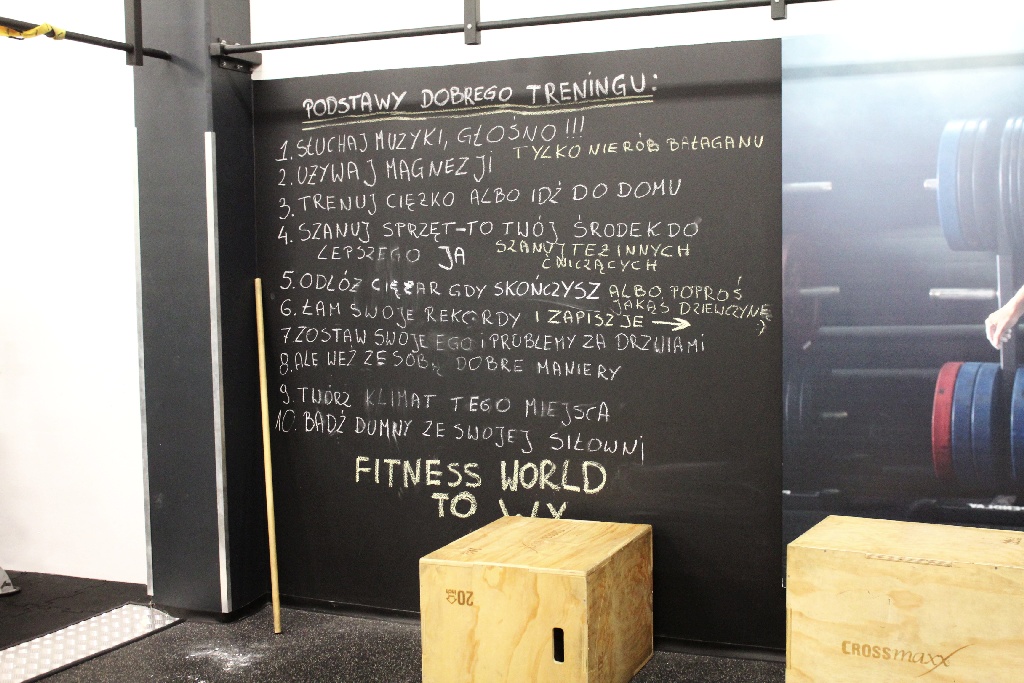 PODSTAWY DOBREGO TRENINGU:
1. SŁUCHAJ MUZYKI, GŁOŚNO!!!
2. UŻYWAJ MAGNEZJI TYLKO NIE RÓB BAŁAGANU
3. TRENUJ CIĘŻKO ALBO IDŹ DO DOMU
4. SZANUJ SPRZĘT-TO TWÓJ ŚRODEK DO
LEPSZEGO JA SZANUJ TEŻ INNYCH
ĆWICZĄCYCH
5. ODŁÓŻ CIĘŻAR GDY SKOŃCZYSZ ALBO POPROŚ
JAKĄŚ DZIEWCZYNĘ
;)
6. ŁAM SWOJE REKORDY I ZAPISZ JE →
7 ZOSTAW SWOJE EGO i PROBLEMY ZA DRZWIAMI
8. ALE WEŹ ZE SOBĄ DOBRE MANIERY
9. TWÓRZ KLIMAT TEGO MIEJSCA
10. BĄDŹ DUMNY ZE SWOJEJ SIŁOWNI
FITNESS WORLD
TO WY
20
CROSSmaxx